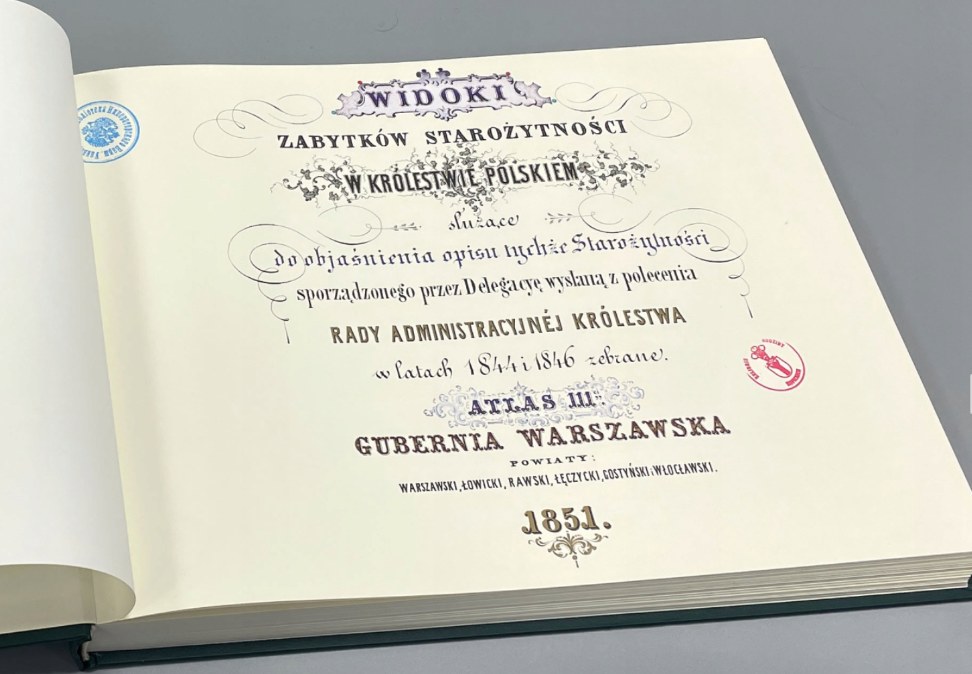 WIDOKI
ZABYTKÓW STAROŻYTNOŚCI
W KRÓLESTWIE POLSKIEM
służące
do objaśnienia opisu tychże Starożytności
sporządzonego przez Delegacyę wysłaną z polecenia
RADY ADMINISTRACYJNÉJ KRÓLESTWA
w latach 1844 i 1846 zebrane.
ATLAS III
GUBERNIA WARSZAWSKA
POWIATY:
WARSZAWSKI, ŁOWICKI, RAWSKI, ŁĘCZYCKI, GOSTYŃSKI i WŁOCŁAWSKI.
1851.